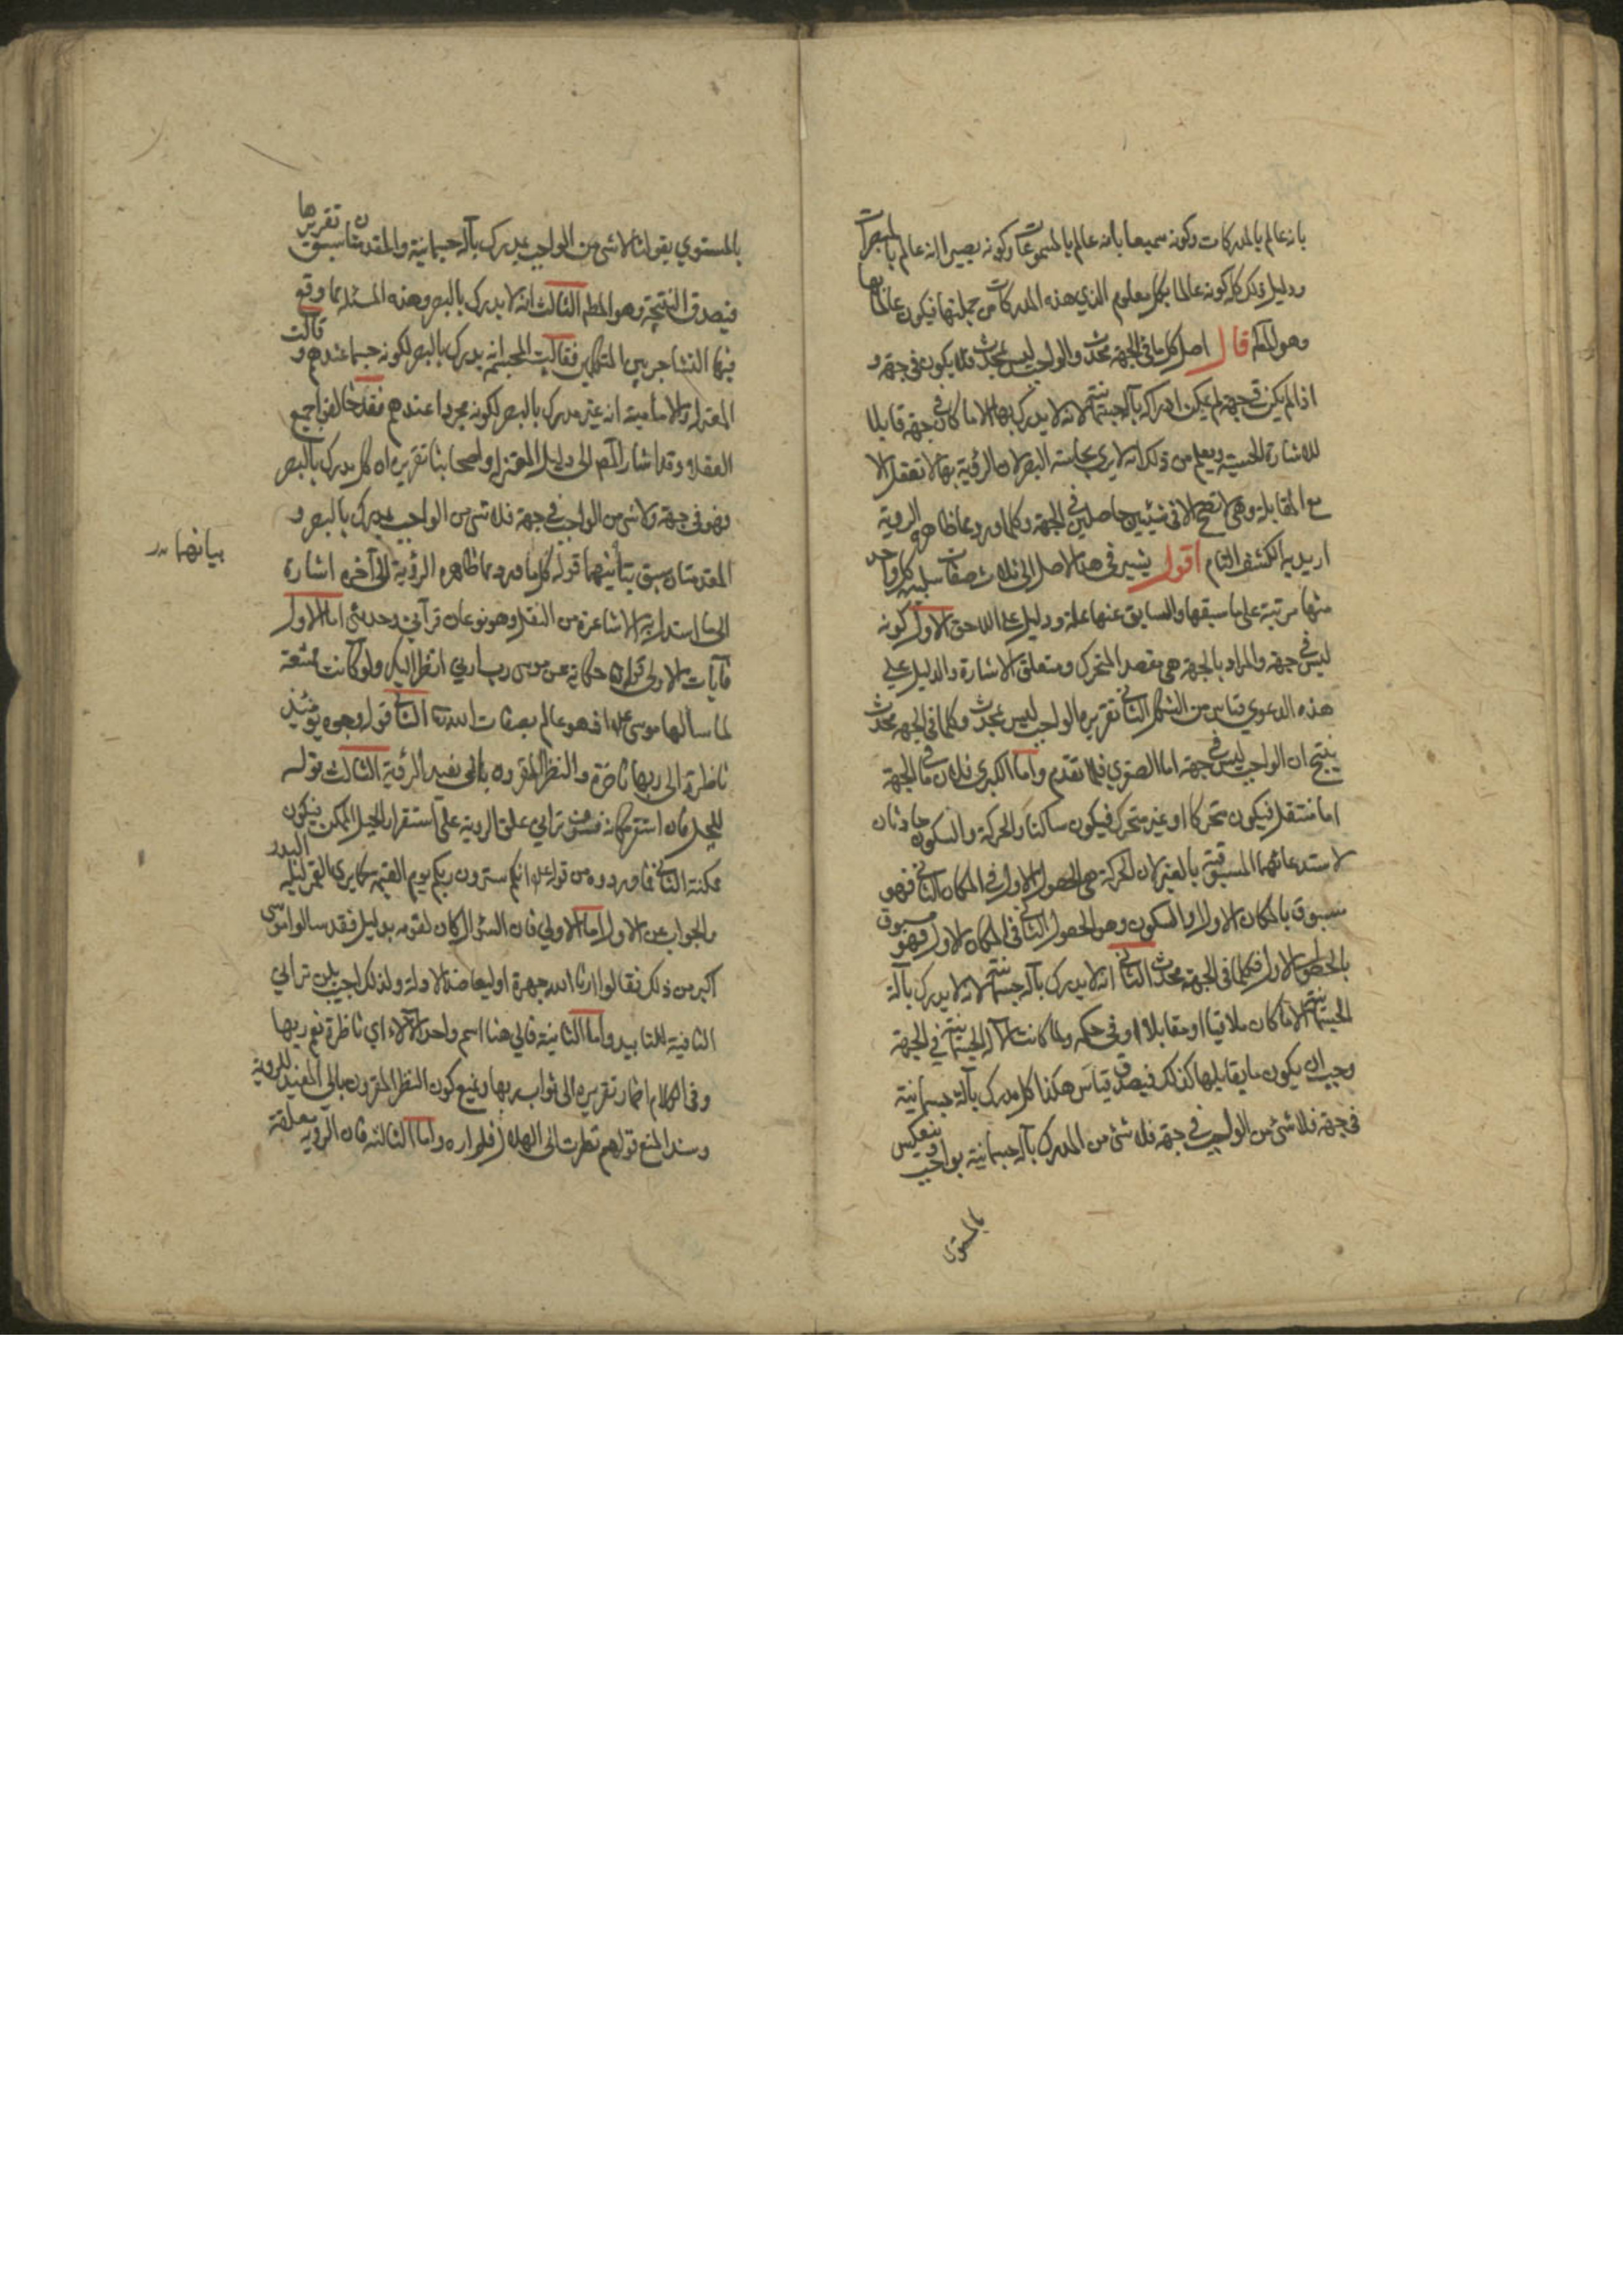 بانه عالم بالمدركات وكونه سميعا بانه عالم بالمسموعات وكونه بصيرا انه عالم بالمبصرات
ودليل ذلك كله كونه عالما بكل معلوم الذي هذه المدركات من جملتها فيكون عالما بها
وهو المط قال اصل كل ما في الجهة محدث والواجب ليس بمحدث فلا يكون في جهة و
اذا لم يكن في جهة لم يمكن ادراكه بآلة جسمانية لانه لا يدرك بها الا ما كان في جهة قابلا
للاشارة الحسية ويعلم من ذلك انه لا يرى بحاسة البصر لان الرؤية بها لا تعقل الا
مع المقابلة وهي لا تصح الا في شيئين حاصلين في الجهة وكلما ورد مما ظاهره الروية
اريد به الكشف التام اقول يشير في هذا الاصل الى ثلاث صفات سلبية كل واحد
منها مرتبة على ما سبقها والسابق عنها علة ودليل على اللاحق الاول كونه
ليس في جهة والمراد بالجهة هي مقصد المتحرك ومتعلق الاشارة والدليل على
هذه الدعوى قياس من الشكل الثاني تقريره الواجب ليس بمحدث وكلما في الجهة محدث
ينتج ان الواجب ليس في جهة اما الصغرى فلما تقدم واما الكبرى فلان ما في الجهة
اما منتقل فيكون متحركا او غير متحرك فيكون ساكنا والحركة والسكون حادثان
لاستدعائهما المسبوقية بالغير لان الحركة هي الحصول الاول في المكان الثاني فهو
مسبوق بالمكان الاول والسكون وهو الحصول الثاني في المكان الاول فهو مسبوق
بالحصول الاول فكلما في الجهة محدث الثاني انه لا يدرك بآلة جسمانية لانه لا يدرك بآلة
الجسمانية الا ما كان ملاقيا او مقابلا او في حكمه ولما كانت الآلة الجسمانية في الجهة
وجب ان يكون ما يقابلها كذلك فيصدق قياس هكذا كل مدرك بآلة جسمانية
في جهة فلا شئ من الواجب في جهة فلا شئ من المدرك بآلة جسمانية بواجب وينعكس
بالمستوى
بالمستوي بقولنا لا شئ من الواجب بمدرك بآلة جسمانية والمقدمتان سبق تقريرها
فيصدق النتيجة وهو المط الثالث انه لا يدرك بالبصر وهذه المسئلة مما وقع
فيها التشاجر بين المتكلمين فقالت المجسمة انه يدرك بالبصر لكونه جسما عندهم و قالت
المعتزلة والامامية انه غير مدرك بالبصر لكونه مجردا عندهم فقد خالفوا جميع
العقلاء وقد اشار المص الى دليل المعتزلة واصحابنا تقريره ان كل مدرك بالبصر
فهو في جهة ولا شئ من الواجب في جهة فلا شئ من الواجب بمدرك بالبصر و
المقدمتان سبق بيانهما قوله كل ما ورد مما ظاهره الرؤية الى آخره اشارة
بيانهما
الى ما استدل به الاشاعرة من النقل وهو نوعان قرآني وحديثي اما الاول
فآيات الاولى قوله حكاية عن موسى رب ارني انظر اليك ولو كانت ممتنعة
لما سألها موسى فهو عالم بصفات الله الثاني قوله وجوه يومئذ
ناظرة الى ربها ناضرة والنظر المقرون بالى يفيد الرؤية الثالث قوله
للجبل فان استقر مكانه فسوف تراني علق الروية على استقرار الجبل الممكن فيكون
ممكنة الثاني فما وردوه من قوله انكم سترون ربكم يوم القيمة كما يرى القمر ليلة البدر
والجواب عن الاول اما الاولى فان السؤال كان لقومه بدليل فقد سالوا موسى
اكبر من ذلك فقالوا ارنا الله جهرة ولذلك اجيب بلن تراني
النافية للتابيد واما الثانية فالى هنا اسم واحد الآلاء اي ناظرة نعم ربها
وفي الكلام اضمار تقريره الى ثواب ربها ونمنع كون النظر المقرون بالى المفيد للروية
وسند المنع قولهم نظرت الى الهلال فلم اره واما الثالثة فان الروية معلقة